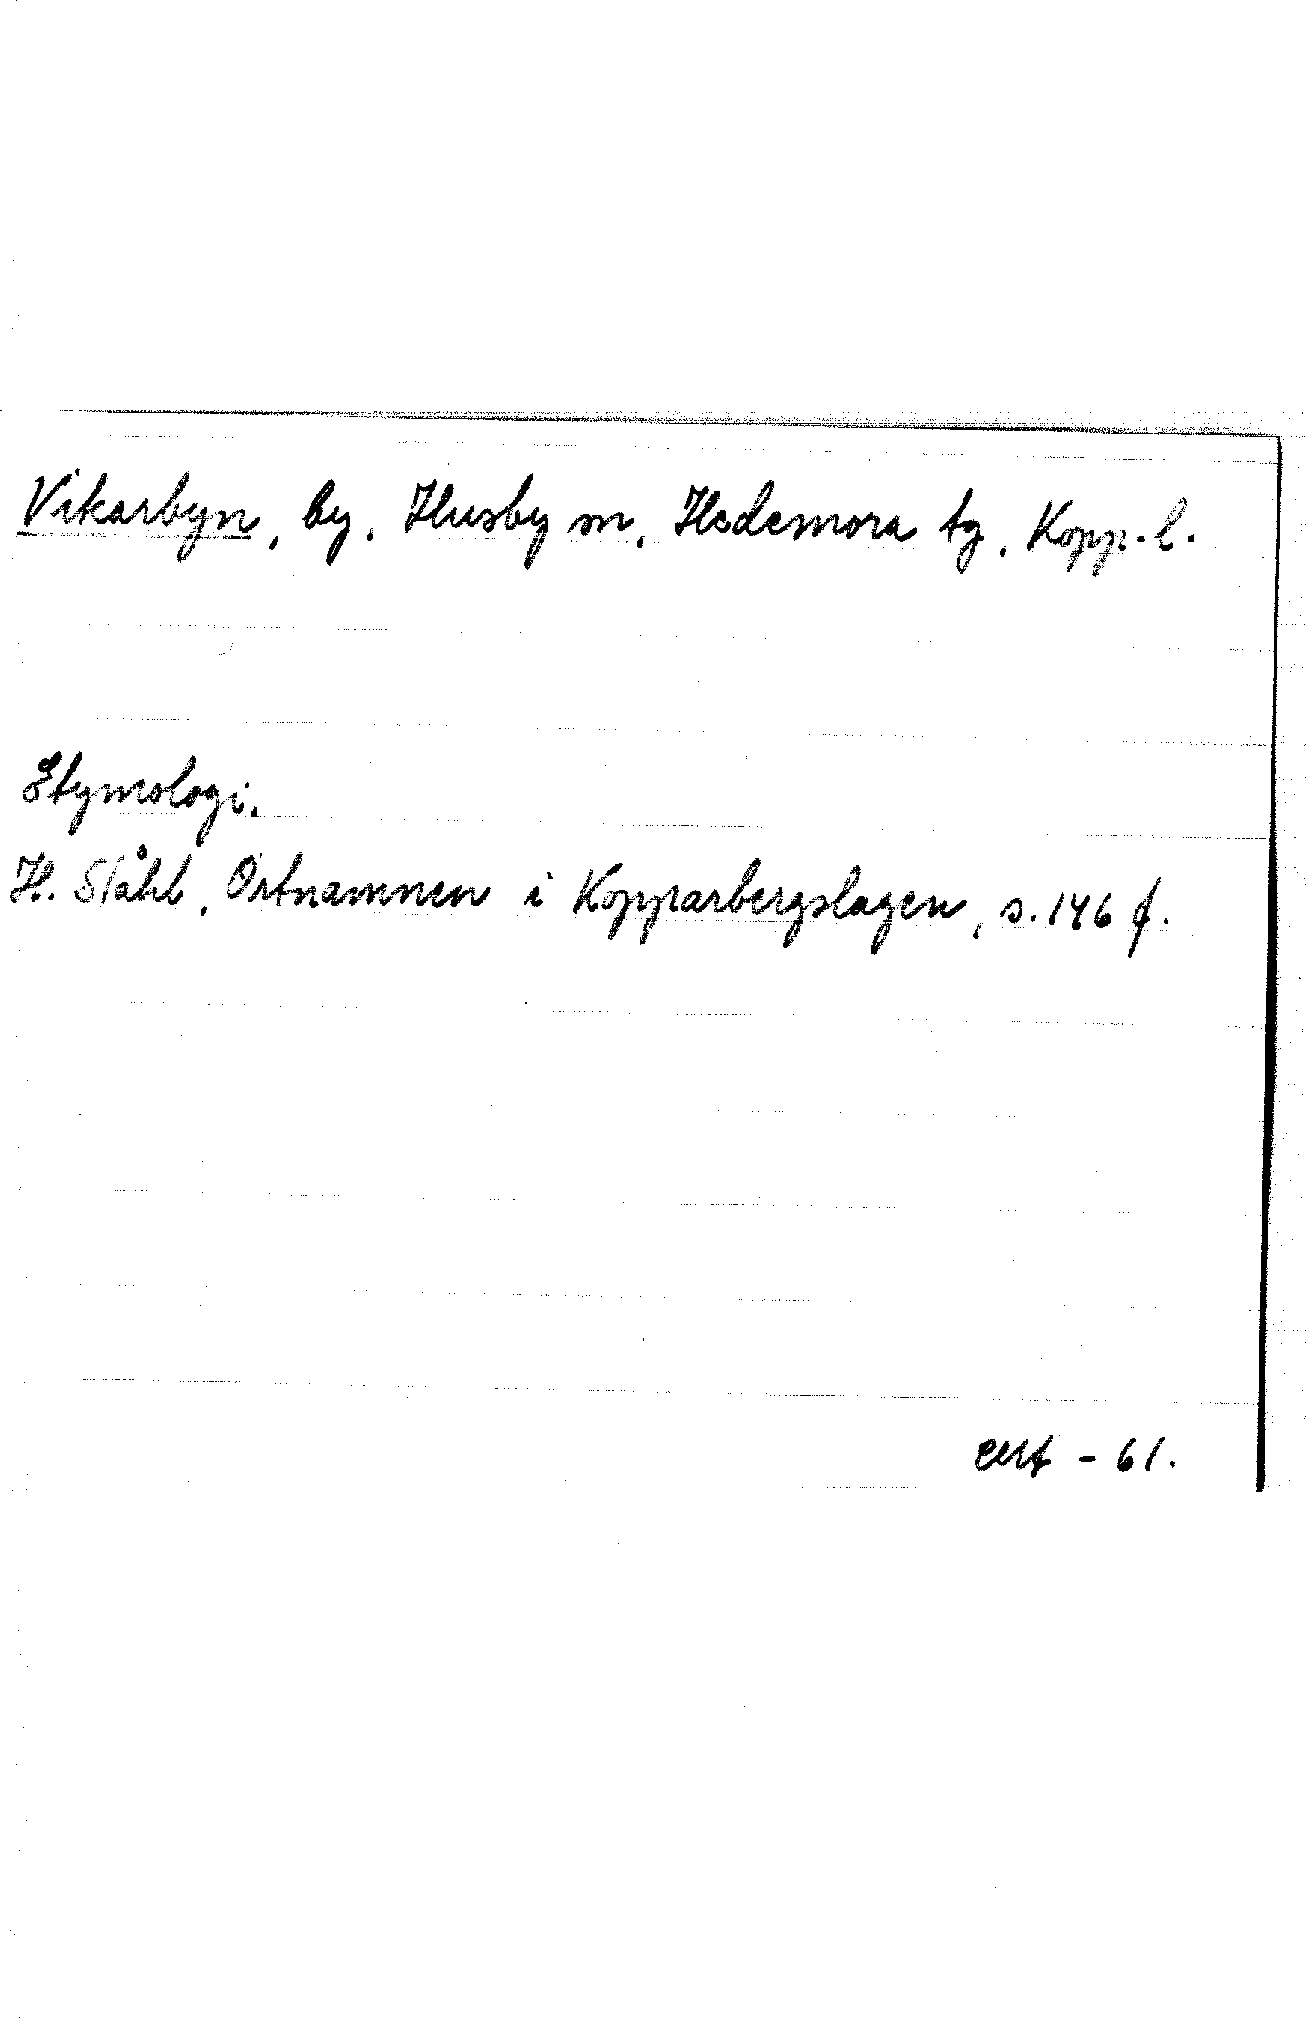 Vikarbyn, by, Husby sn, Hedemora tg, Kopp. l.
Etymologi.
H. Ståhl, Ortnamnen i Kopparbergslagen, s. 146 f.
- 61.